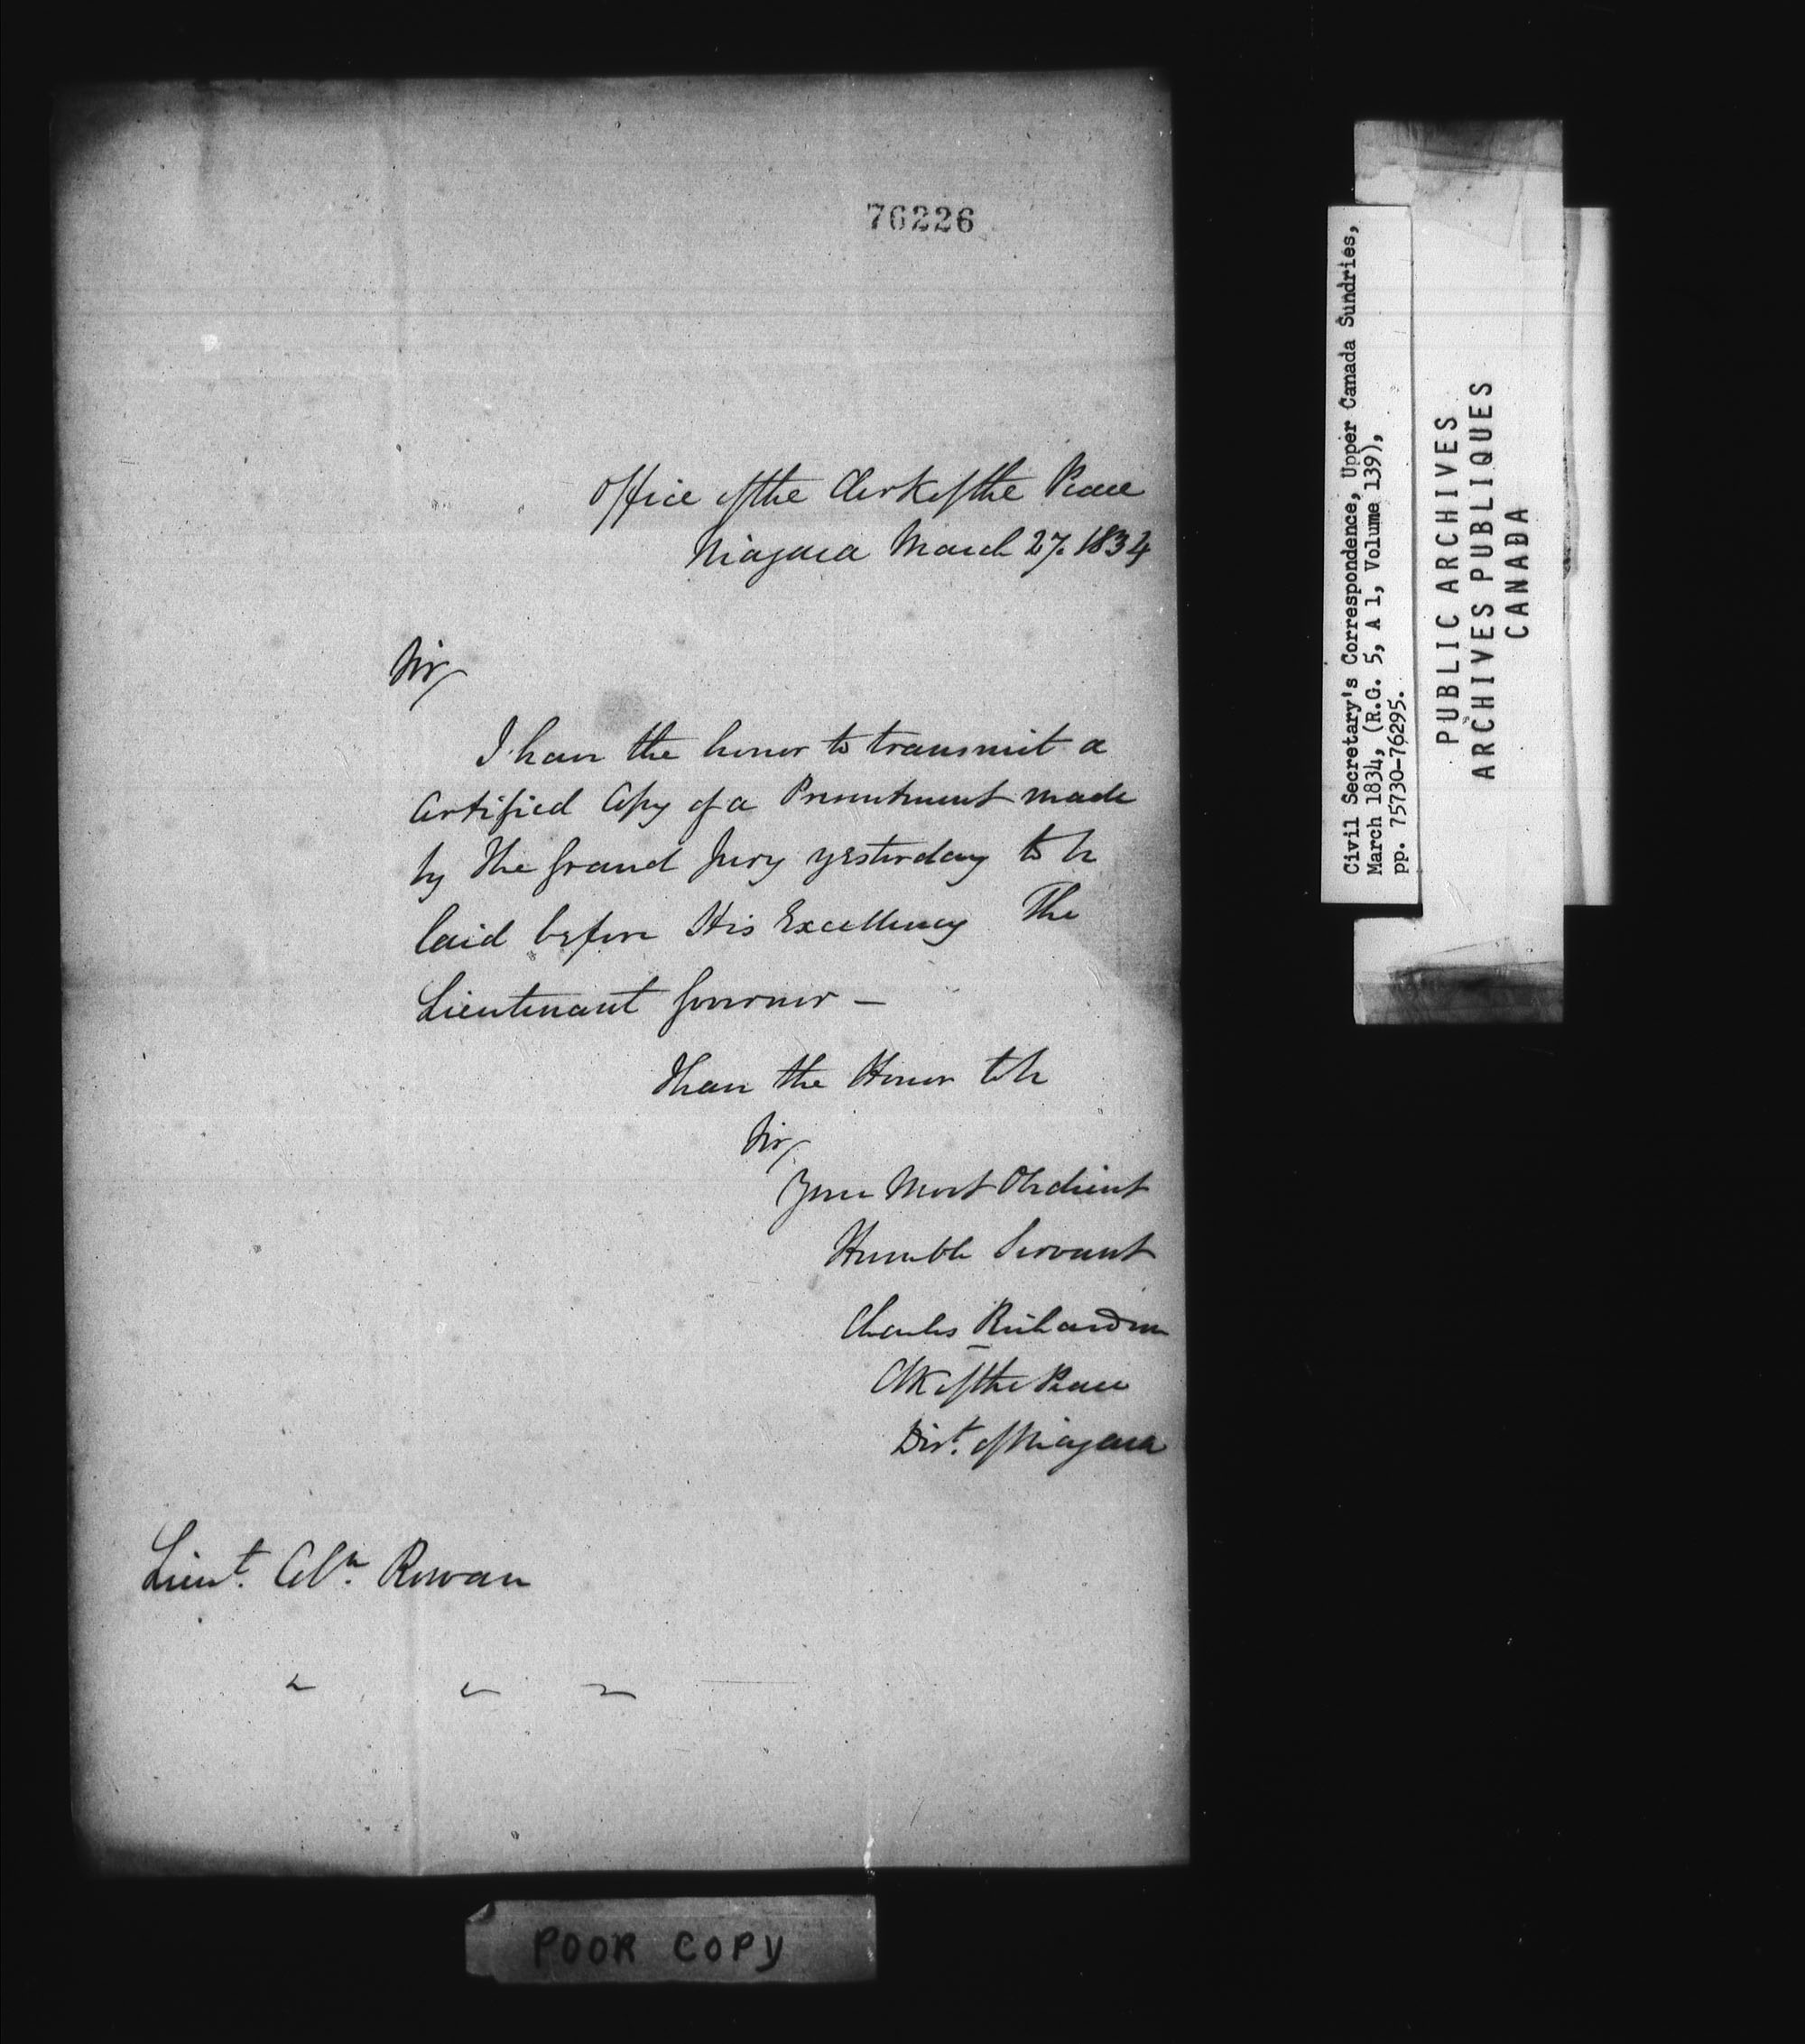 76226
Office of the Clerk of the Peace
Niagara March 27. 1834
Sir,
I have the honor to transmit a
Certified Copy of a Presentment made
by the Grand Jury yesterday to be
laid before His Excellency The
Lieutenant Governor —
I have the Honor to be
Sir,
Your Most Obedient
Humble Servant
Charles Richardson
Clk of the Peace
Dist. of Niagara
Lieut. Coln. Rowan
Civil Secretary's Correspondence, Upper Canada Sundries,
March 1834, (R.G. 5, A 1, Volume 139),
pp. 75730-76295.
PUBLIC ARCHIVES
ARCHIVES PUBLIQUES
CANADA
POOR COPY